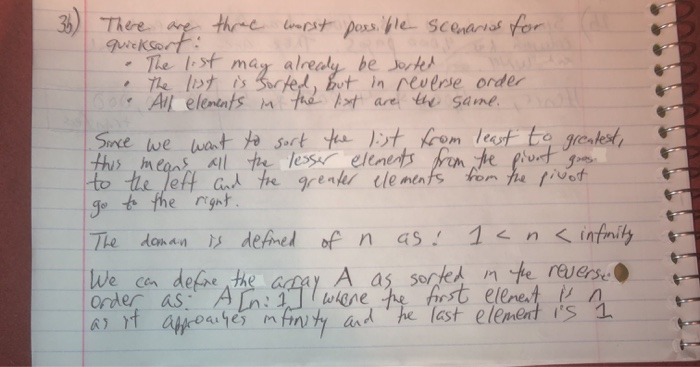 3b) There are three worst possible scenarios for
quicksort:
• The list may already be sorted
• The list is sorted, but in reverse order
• All elements in the list are the same.
Since we want to sort the list from least to greatest,
this means all the lesser elements from the pivot goes
to the left and the greater elements from the pivot
go to the right.
The domain is defined of n as: 1 < n < infinity
We can define the array A as sorted in the reverse
order as: A[n:1] where the first element is n
as it approaches infinity and the last element is 1